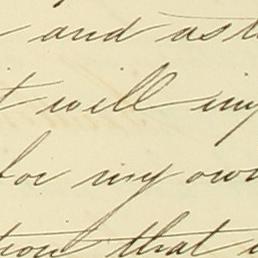 and ast
t will inj
for my own
tion that